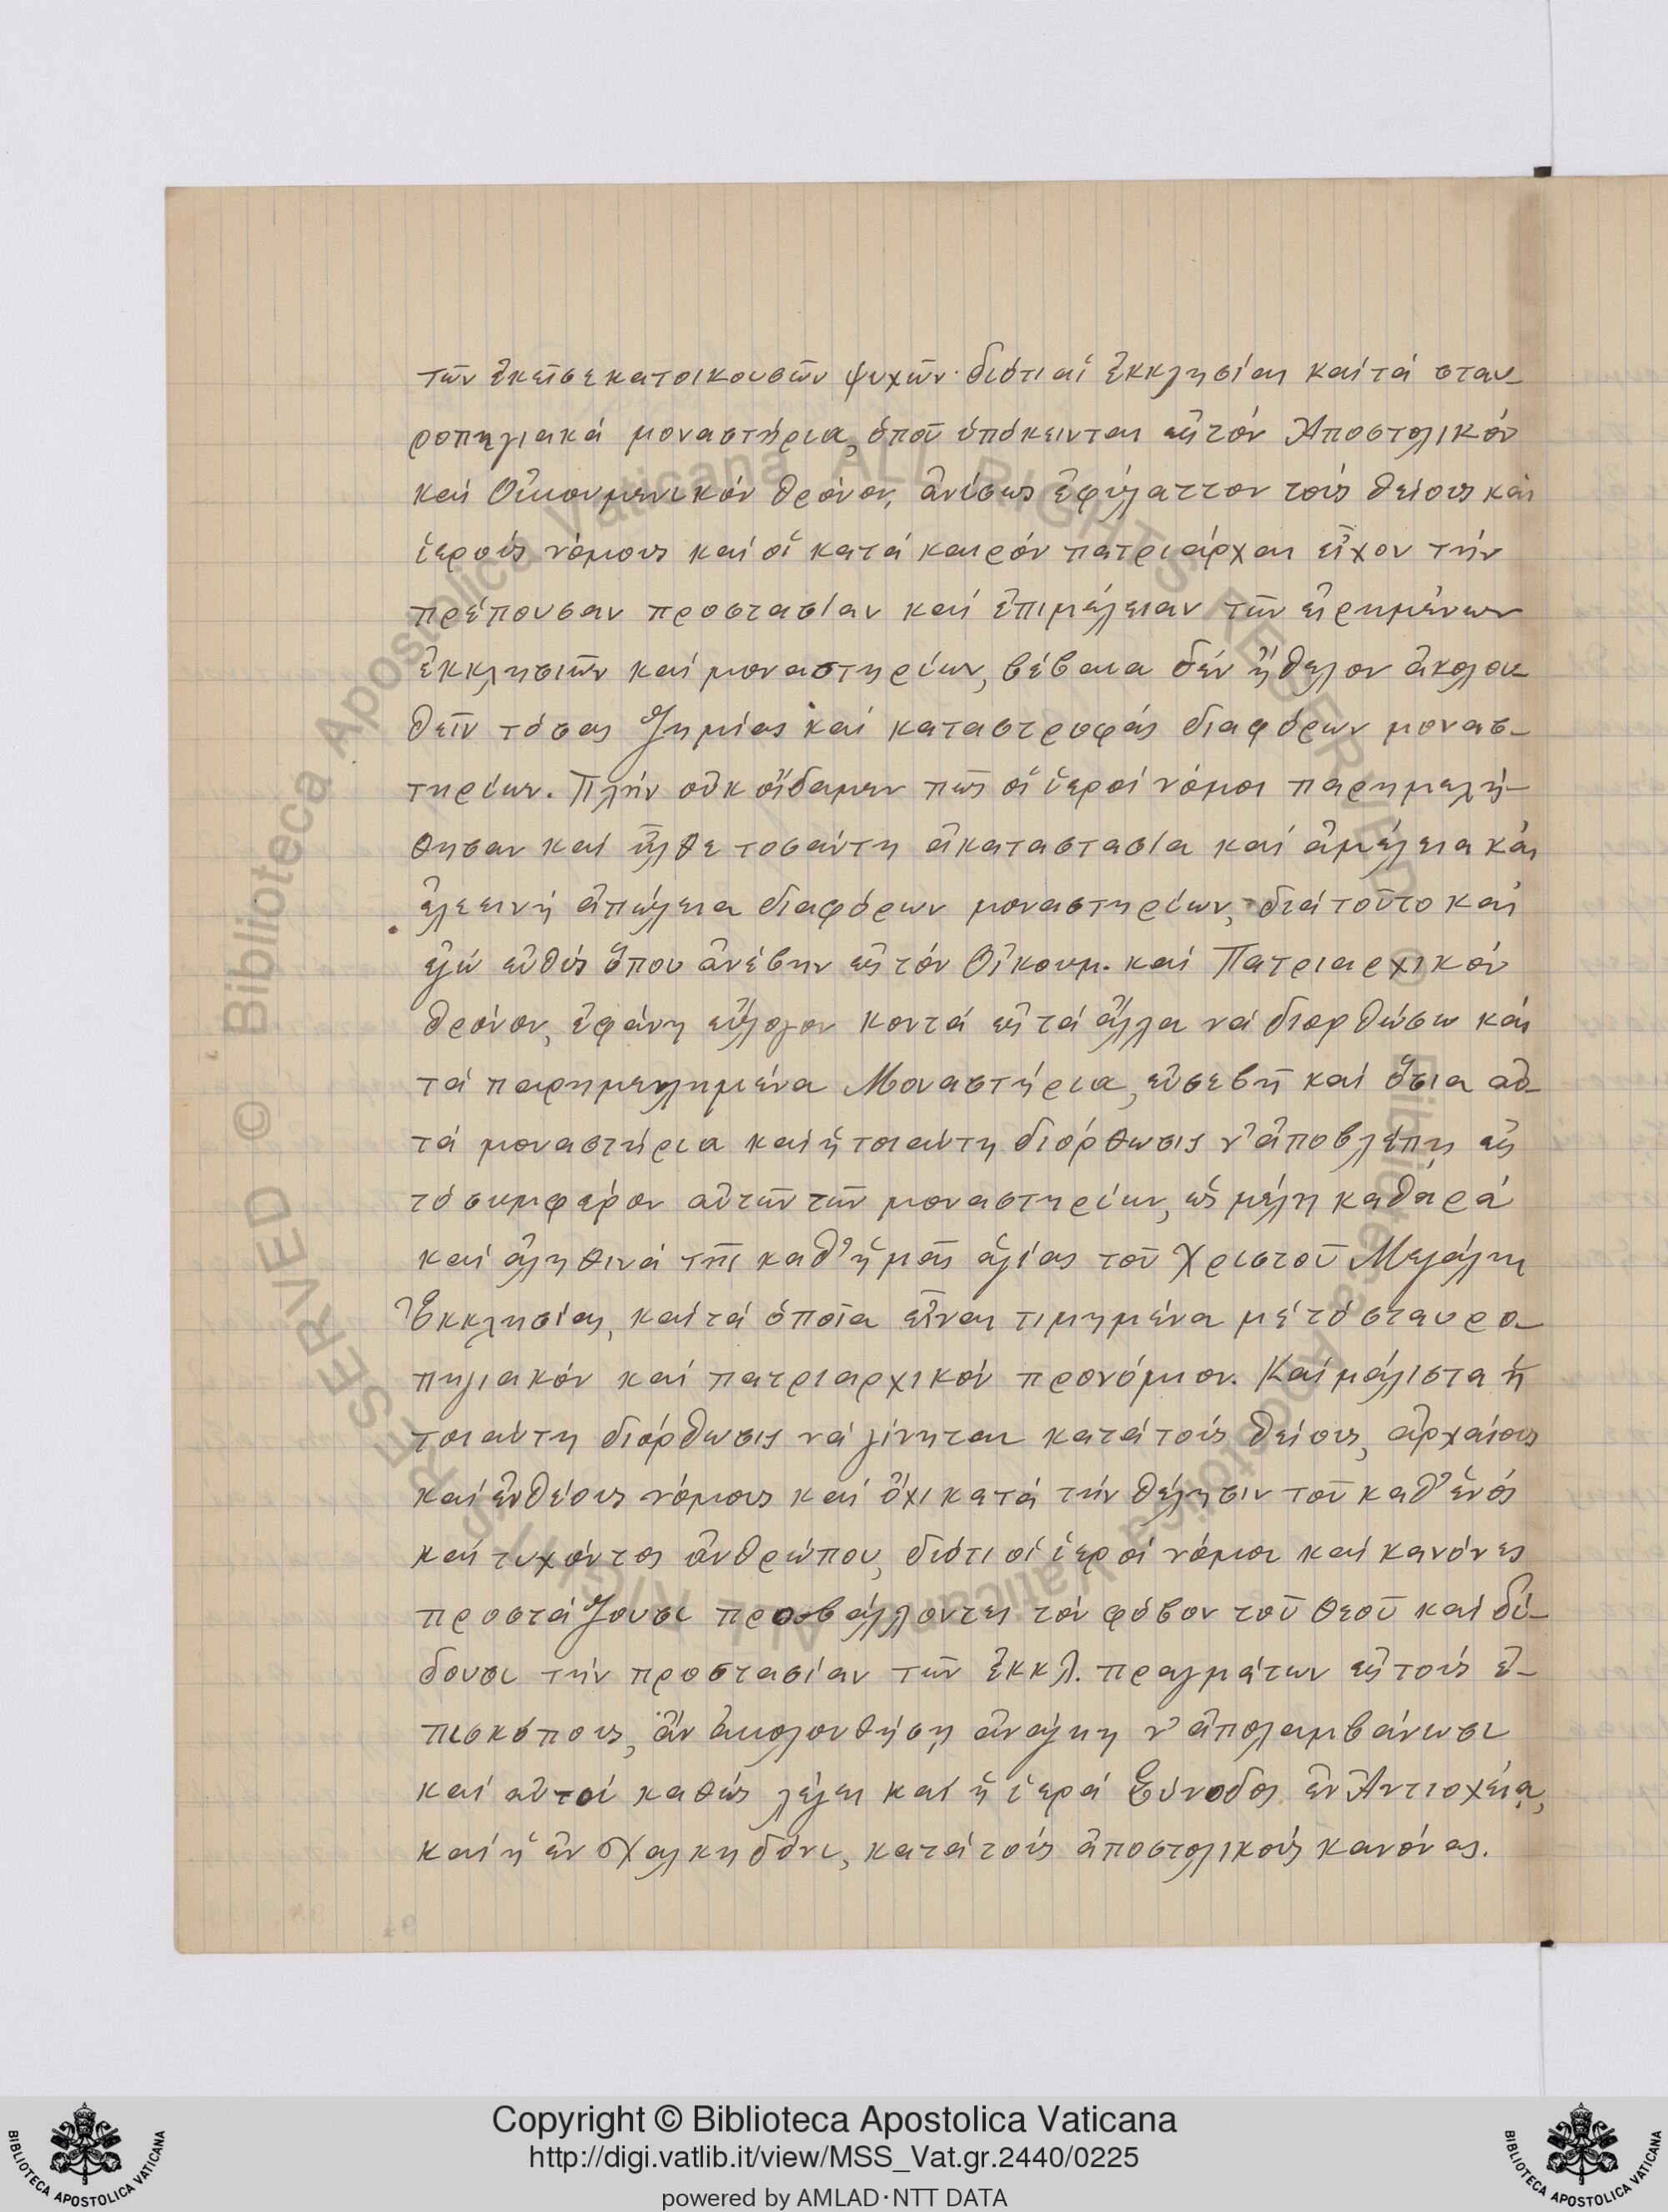 τῶν ἐκεῖσε κατοικουσῶν ψυχῶν· διότι αἱ ἐκκλησίαι καί τά σταυ-
ροπηγιακά μοναστήρια, ὁποῦ ὑπόκεινται εἰς τόν Ἀποστολικόν
καί Οἰκουμενικόν θρόνον, ἀνίσως ἐφύλαττον τούς θείους καί
ἱερούς νόμους καί οἱ κατά καιρόν πατριάρχαι εἶχον τήν
πρέπουσαν προστασίαν καί ἐπιμέλειαν τῶν εἰρημένων
ἐκκλησιῶν καί μοναστηρίων, βέβαια δέν ἤθελον ἀκολου-
θεῖν τόσας ζημίας καί καταστροφάς διαφόρων μονασ-
τηρίων. Πλήν οὐκ οἴδαμεν πῶς οἱ ἱεροί νόμοι παρημελή-
θησαν καί ἦλθε τοσαύτη ἀκαταστασία καί ἀμέλεια καί
ἐλεεινή ἀπώλεια διαφόρων μοναστηρίων, διά τοῦτο καί
ἐγώ εὐθύς ὅπου ἀνέβην εἰς τόν Οἰκουμ. καί Πατριαρχικόν
θρόνον, ἐφάνη εὔλογον κοντά εἰς τά ἄλλα νά διορθώσω καί
τά παρημελημένα Μοναστήρια, εὐσεβῆ καί ὅσια αὐ-
τά μοναστήρια καί ἡ τοιαύτη διόρθωσις ν' ἀποβλέπῃ εἰς
τό συμφέρον αὐτῶν τῶν μοναστηρίων, ὡς μέλη καθαρά
καί ἀληθινά τῆς καθ' ἡμᾶς ἁγίας τοῦ Χριστοῦ Μεγάλης
Ἐκκλησίας, καί τά ὁποῖα εἶναι τιμημένα μέ τό σταυρο-
πηγιακόν καί πατριαρχικόν προνόμιον. Καί μάλιστα ἡ
τοιαύτη διόρθωσις νά γίνηται κατά τούς θείους, ἀρχαίους
καί ἐνθέους νόμους καί ὄχι κατά τήν θέλησιν τοῦ καθ' ἑνός
καί τυχόντος ἀνθρώπου, διότι οἱ ἱεροί νόμοι καί κανόνες
προστάζουσι προβάλλοντες τόν φόβον τοῦ Θεοῦ καί δί-
δουσι τήν προστασίαν τῶν ἐκκλ. πραγμάτων εἰς τούς ἐ-
πισκόπους, ἄν ἀκολουθήσῃ ἀνάγκη ν' ἀπολαμβάνωσι
καί αὐτοί καθώς λέγει καί ἡ ἱερά Σύνοδος ἐν Ἀντιοχείᾳ,
καί ἡ ἐν Χαλκηδόνι, κατά τούς ἀποστολικούς κανόνας.
Copyright © Biblioteca Apostolica Vaticana
http://digi.vatlib.it/view/MSS_Vat.gr.2440/0225
powered by AMLAD·NTT DATA